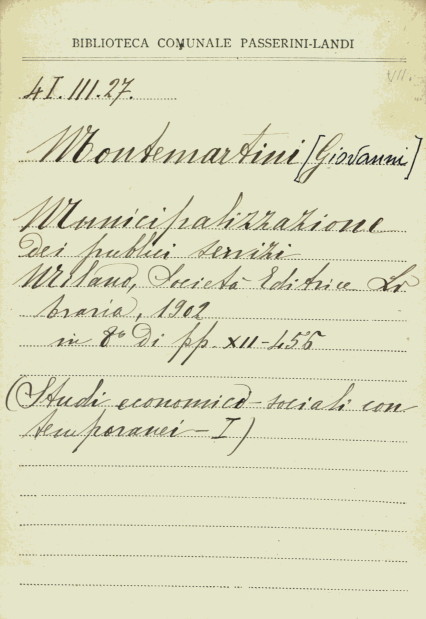 BIBLIOTECA COMUNALE PASSERINI-LANDI
VII.
4I.III.27.
Montemartini [Giovanni]
Municipalizzazione
dei publici servizi
Milano, Società Editrice Li
braria, 1902
in 8° di pp. XII-456
(Studi economico-sociali con
temporanei - I)